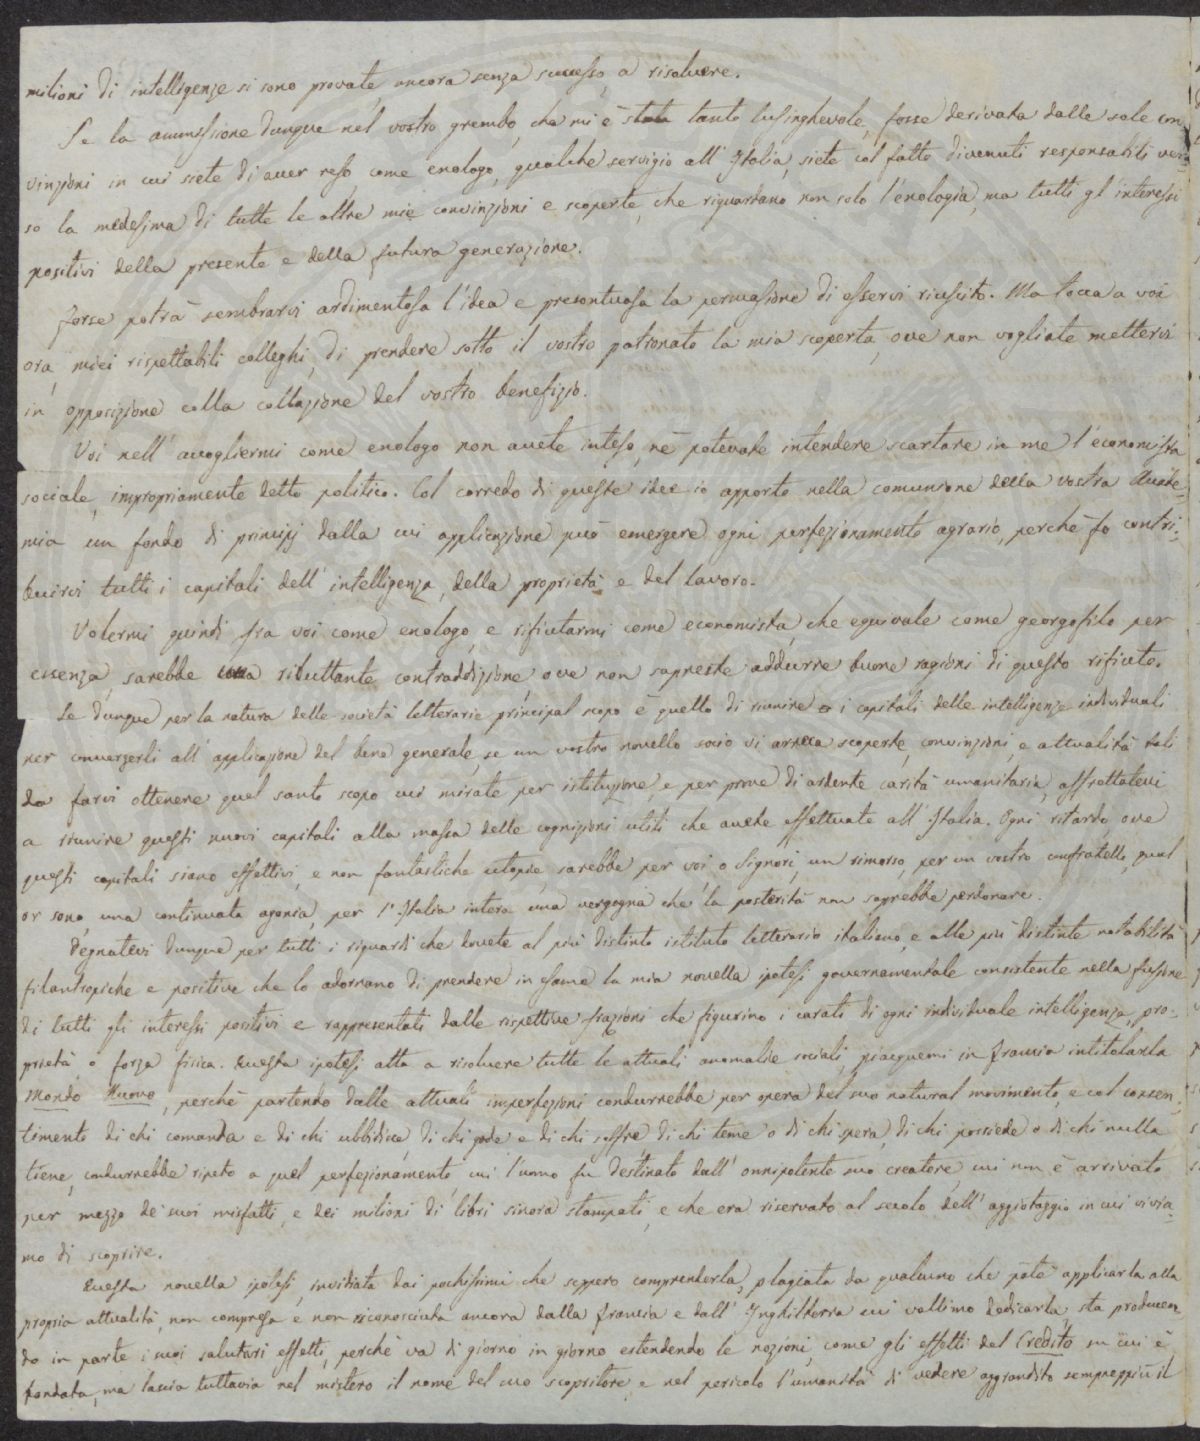 milioni di intelligenze si sono provate ancora senza successo a risolvere.
Se la ammissione dunque nel vostro grembo, che mi è stata tanto lusinghevole, fosse derivata dalle sole con
vinzioni in cui siete di aver reso, come enologo, qualche servigio all'Italia, siete col fatto divenuti responsabili ver
so la medesima di tutte le altre mie convinzioni e scoperte, che riguardano non solo l'enologia, ma tutti gl'interessi
positivi della presente e della futura generazione.
Forse potrà sembrarvi ardimentosa l'idea e presontuosa la persuasione di esservi riuscito. Ma tocca a voi
ora, miei rispettabili colleghi, di prendere sotto il vostro patronato la mia scoperta, ove non vogliate mettervi
in opposizione colla collazione del vostro benefizio.
Voi nell'accogliermi come enologo non avete inteso, nè potevate intendere scartare in me l'economista
sociale, impropriamente detto politico. Col corredo di queste idee io apporto nella comunione della vostra Accade-
mia un fondo di principj dalla cui applicazione può emergere ogni perfezionamento agrario, perchè fo contri-
buirvi tutti i capitali dell'intelligenza, della proprietà e del lavoro.
Volermi quindi fra voi come enologo, e rifiutarmi come economista, che equivale come georgofilo per
essenza, sarebbe una ributtante contraddizione, ove non sapreste addurre buone ragioni di questo rifiuto.
Se dunque per la natura delle società letterarie principal scopo è quello di riunire i capitali delle intelligenze individuali
per convergerli all'applicazione del bene generale, se un vostro novello socio vi arreca scoperte, convinzioni, e attualità tali
da farvi ottenere quel santo scopo cui mirate per istituzione, e per prove di ardente carità umanitaria, affrettatevi
a riunire questi nuovi capitali alla massa delle cognizioni utili che avete effettuate all'Italia. Ogni ritardo, ove
questi capitali siano effettivi, e non fantastiche utopie, sarebbe per voi, o Signori, un rimorso, per un vostro confratello, qual
or sono, una continuata agonia, per l'Italia intera una vergogna che la posterità non saprebbe perdonare.
Degnatevi dunque per tutti i riguardi che dovete al più distinto istituto letterario italiano, e alle più distinte notabilità
filantropiche e positive che lo adornano di prendere in esame la mia novella ipotesi governamentale consistente nella fusione
di tutti gli interessi positivi e rappresentati dalle rispettive frazioni che figurino i carati di ogni individuale intelligenza, pro-
prietà, o forza fisica. Questa ipotesi atta a risolvere tutte le attuali anomalie sociali, piacquemi in Francia intitolarla
Mondo Nuovo, perchè partendo dalle attuali imperfezioni condurrebbe per opera del suo natural movimento, e col consen-
timento di chi comanda e di chi ubbidisce, di chi gode e di chi soffre, di chi teme o di chi spera, di chi possiede o di chi nulla
tiene, condurrebbe ripeto a quel perfezionamento cui l'uomo fu destinato dall'onnipotente suo creatore, cui non è arrivato
per mezzo de' suoi misfatti, e dei milioni di libri sinora stampati, e che era riservato al secolo dell'aggiotaggio in cui vivia-
mo di scoprire.
Questa novella ipotesi, invidiata dai pochissimi che seppero comprenderla, plagiata da qualcuno che potè applicarla alla
propria attualità, non compresa e non riconosciuta ancora dalla Francia e dall'Inghilterra cui vollimo dedicarla, sta producen-
do in parte i suoi salutari effetti, perchè va di giorno in giorno estendendo le nozioni, come gli effetti del Credito su cui è
fondata, ma lascia tuttavia nel mistero il nome del suo scopritore, e nel pericolo l'umanità di vedere aggrandito sempreppiù il